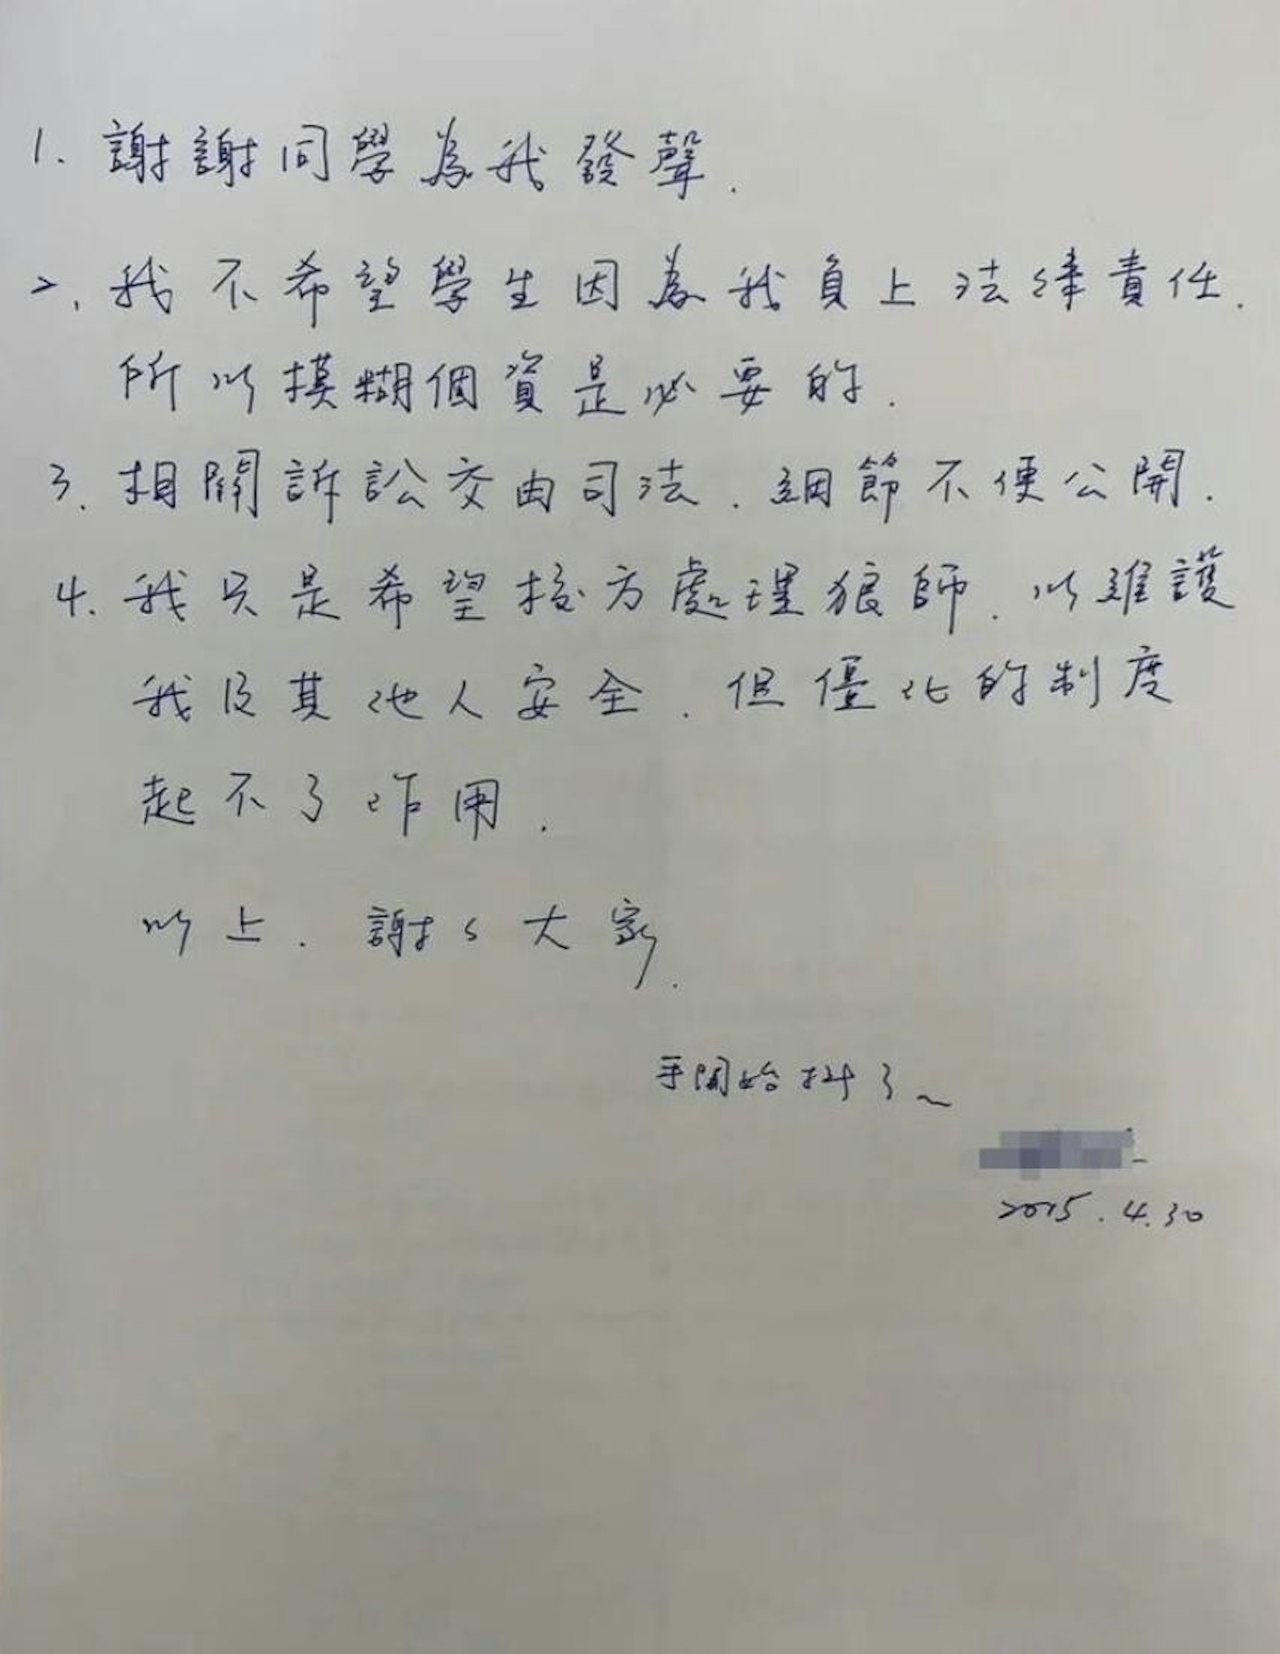 1. 謝謝同學為我發聲.
2. 我不希望學生因為我負上法律責任.
所以模糊個資是必要的.
3. 相關訴訟交由司法. 細節不便公開.
4. 我只是希望校方處理狼師. 以維護
我及其他人安全. 但優化的制度
起不了作用.
以上. 謝々大家.
手開始抖了~
2025.4.30